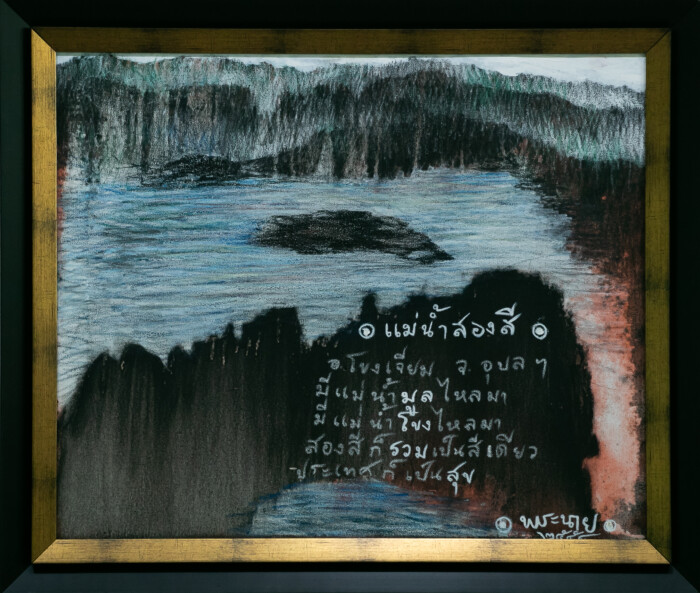 ๏ แม่น้ำสองสี ๏
อ.โขงเจียม จ.อุบลฯ
มีแม่น้ำมูลไหลมา
มีแม่น้ำโขงไหลมา
สองสีก็รวมเป็นสีเดียว
ประเทศก็เป็นสุข
๏ พระนาย ๏
๒๕๕๕